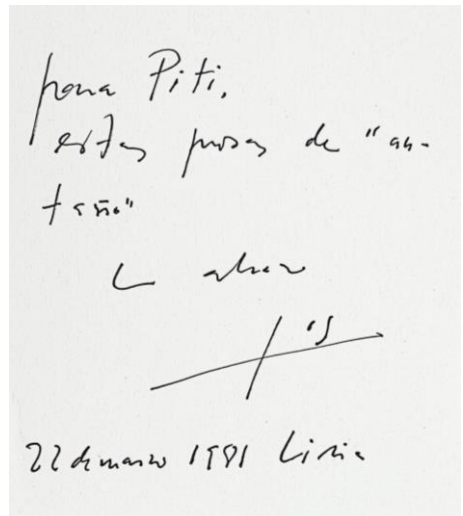 para Piti,
estas prosas de "an-
taño"
abrazo
22 de marzo 1981 Liria